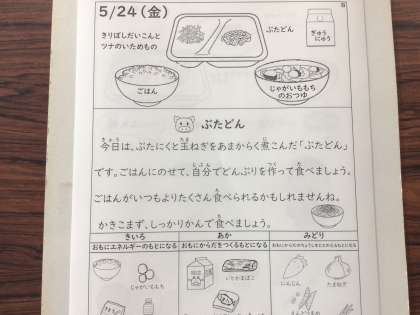 5/24(金)
きりぼしだいこんと
ツナのいためもの
ぶたどん
ぎゅう
にゅう
ごはん
じゃがいももち
のおつゆ
ぶたどん
今日は、ぶたにくと玉ねぎをあまからく煮こんだ「ぶたどん」
です。ごはんにのせて、自分でどんぶりを作って食べましょう。
ごはんがいつもよりたくさん食べられるかもしれませんね。
かきこまず、しっかりかんで食べましょう。
きいろ
あか
みどり
おもにエネルギーのもとになる
おもにからだをつくるもとになる
おもにからだのちょうしをととのえるもとになる
じゃがいももち
いたかまぼこ
にんじん
たまねぎ